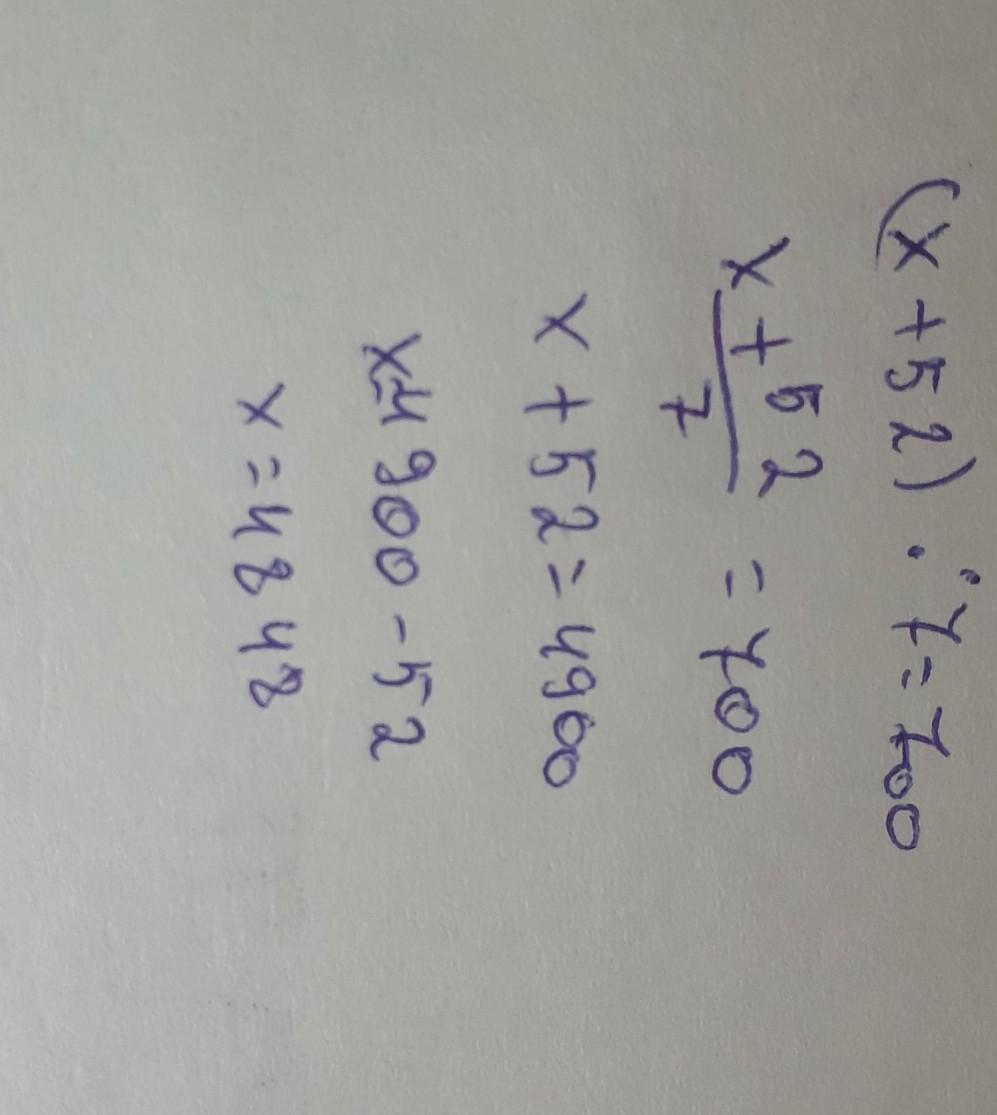 (x+52):7=700
x+52
7
=700
x+52=4900
x=4900-52
x=4848